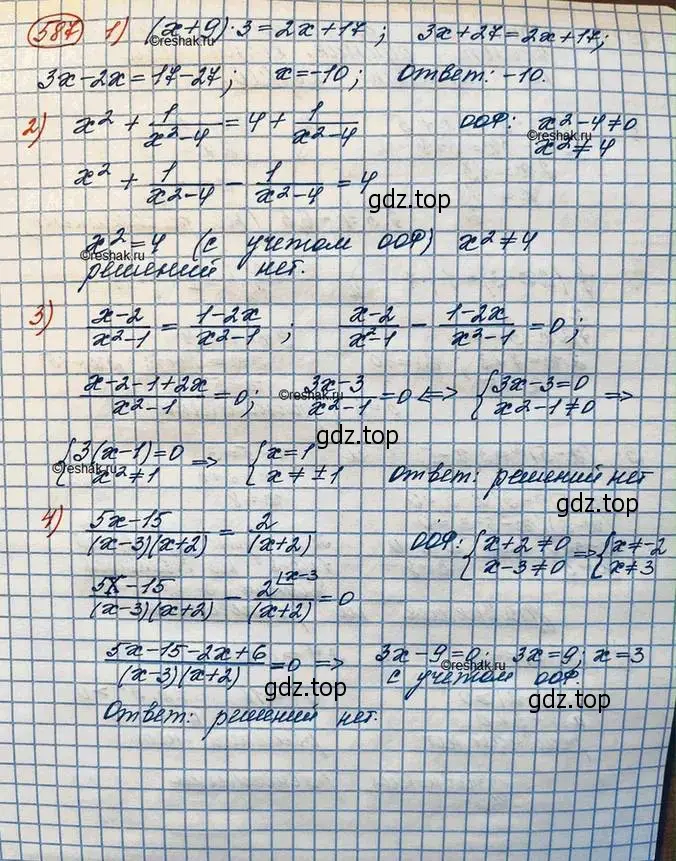 587 1) (x+9)·3=2x+17; 3x+27=2x+17;
©reshak.ru ©reshak.ru
3x-2x=17-27; x=-10; Ответ: -10.
2) x²+1/(x²-4)=4+1/(x²-4) ООФ: x²-4≠0
©reshak.ru ©reshak.ru
x²≠4
x²+1/(x²-4)-1/(x²-4)=4
gdz.top
x²=4 (с учетом ООФ) x²≠4
©reshak.ru
решений нет.
3) (x-2)/(x²-1)=(1-2x)/(x²-1); (x-2)/(x²-1)-(1-2x)/(x²-1)=0;
(x-2-1+2x)/(x²-1)=0; (3x-3)/(x²-1)=0 <=> {3x-3=0 x²-1≠0 =>
©reshak.ru
gdz.top
{3(x-1)=0 x²≠1 => {x=1 x≠±1 Ответ: решений нет
©reshak.ru
gdz.top
4) (5x-15)/((x-3)(x+2))=2/(x+2) ООФ: {x+2≠0 x-3≠0 => {x≠-2 x≠3
(5x-15)/((x-3)(x+2))-2^(x-3)/(x+2)=0
(5x-15-2x+6)/((x-3)(x+2))=0 => 3x-9=0; 3x=9; x=3
©reshak.ru
с учетом ООФ.
gdz.top gdz.top
Ответ: решений нет.